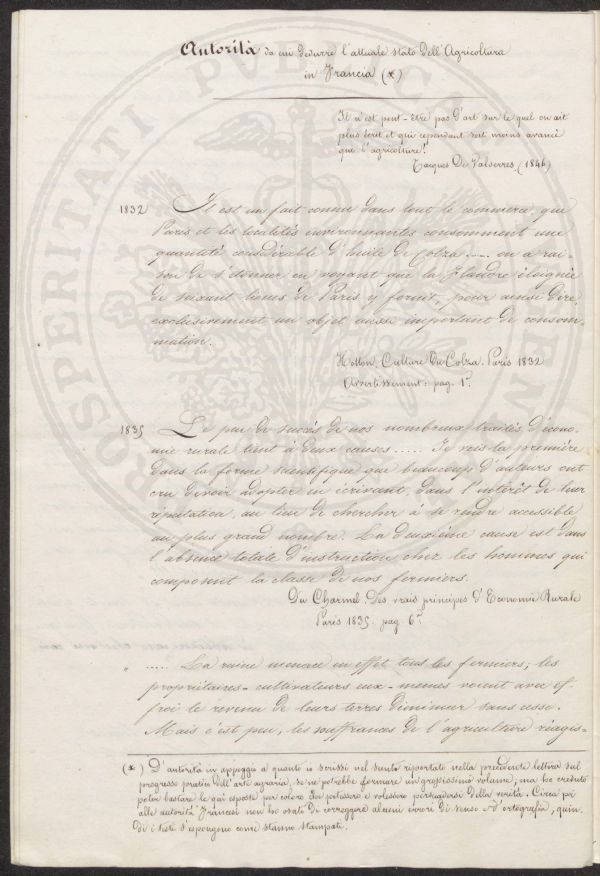 Autorità da cui dedurre l'attuale stato dell'Agricoltura
in Francia (*)
Il n'est peut-être pas d'art sur le quel on ait
plus écrit et qui cependant soit moins avancé
que l'agricolture!
Jacques De Valserres (1846)
1832 Il est un fait connu dans tout le commerce, que
Paris et les localités environnantes consomment une
quantité considérable d'huile de Colza ..... on a rai-
son de s'étonner en voyant que la Flandre éloignée
de soixant lieues de Paris y fournit, pour ainsi dire
exclusivement un objet aussi important de consom-
mation.
Hotton, Culture Du Colza. Paris 1832
Avvertissement: pag. 1ª.
1835 Le peu de succés de nos nombreux traités d'écono-
mie rurale tient à deux causes ..... Je vois la première
dans la forme scientifique que beaucoup d'auteurs ont
cru devoir adopter en écrivant, dans l'intérêt de leur
réputation, au lieu de chercher à se rendre accessible
au plus grand nombre. La deuxième cause est dans
l'absence totale d'instruction chez les hommes qui
composent la classe de nos fermiers.
Du Charmel. Des vrais principes d'Economie Rurale
Paris 1835. pag. 6ª.
" ..... La ruine menace en effet tous les fermiers; les
propriétaires-cultivateurs eux-mêmes voient avec ef-
froi le revenu de leurs terres diminuer sans cesse.
Mais c'est peu, les souffrances de l'agriculture réagis-
(*) D'autorità in appoggio a quanto io scrissi nel sunto riportato nella precedente lettura sul
progresso pratico dell'arte agraria, se ne potrebbe formare un grossissimo volume, ma ho creduto
poter bastare le qui esposte per coloro che potessero e volessero persuadersi della verità. Circa poi
alle autorità Francesi non ho osato di correggere alcuni errori di senso e d'ortografia, quin-
di i testi s'espongono come stanno stampati.
PROSPERITATI PUBLICAE